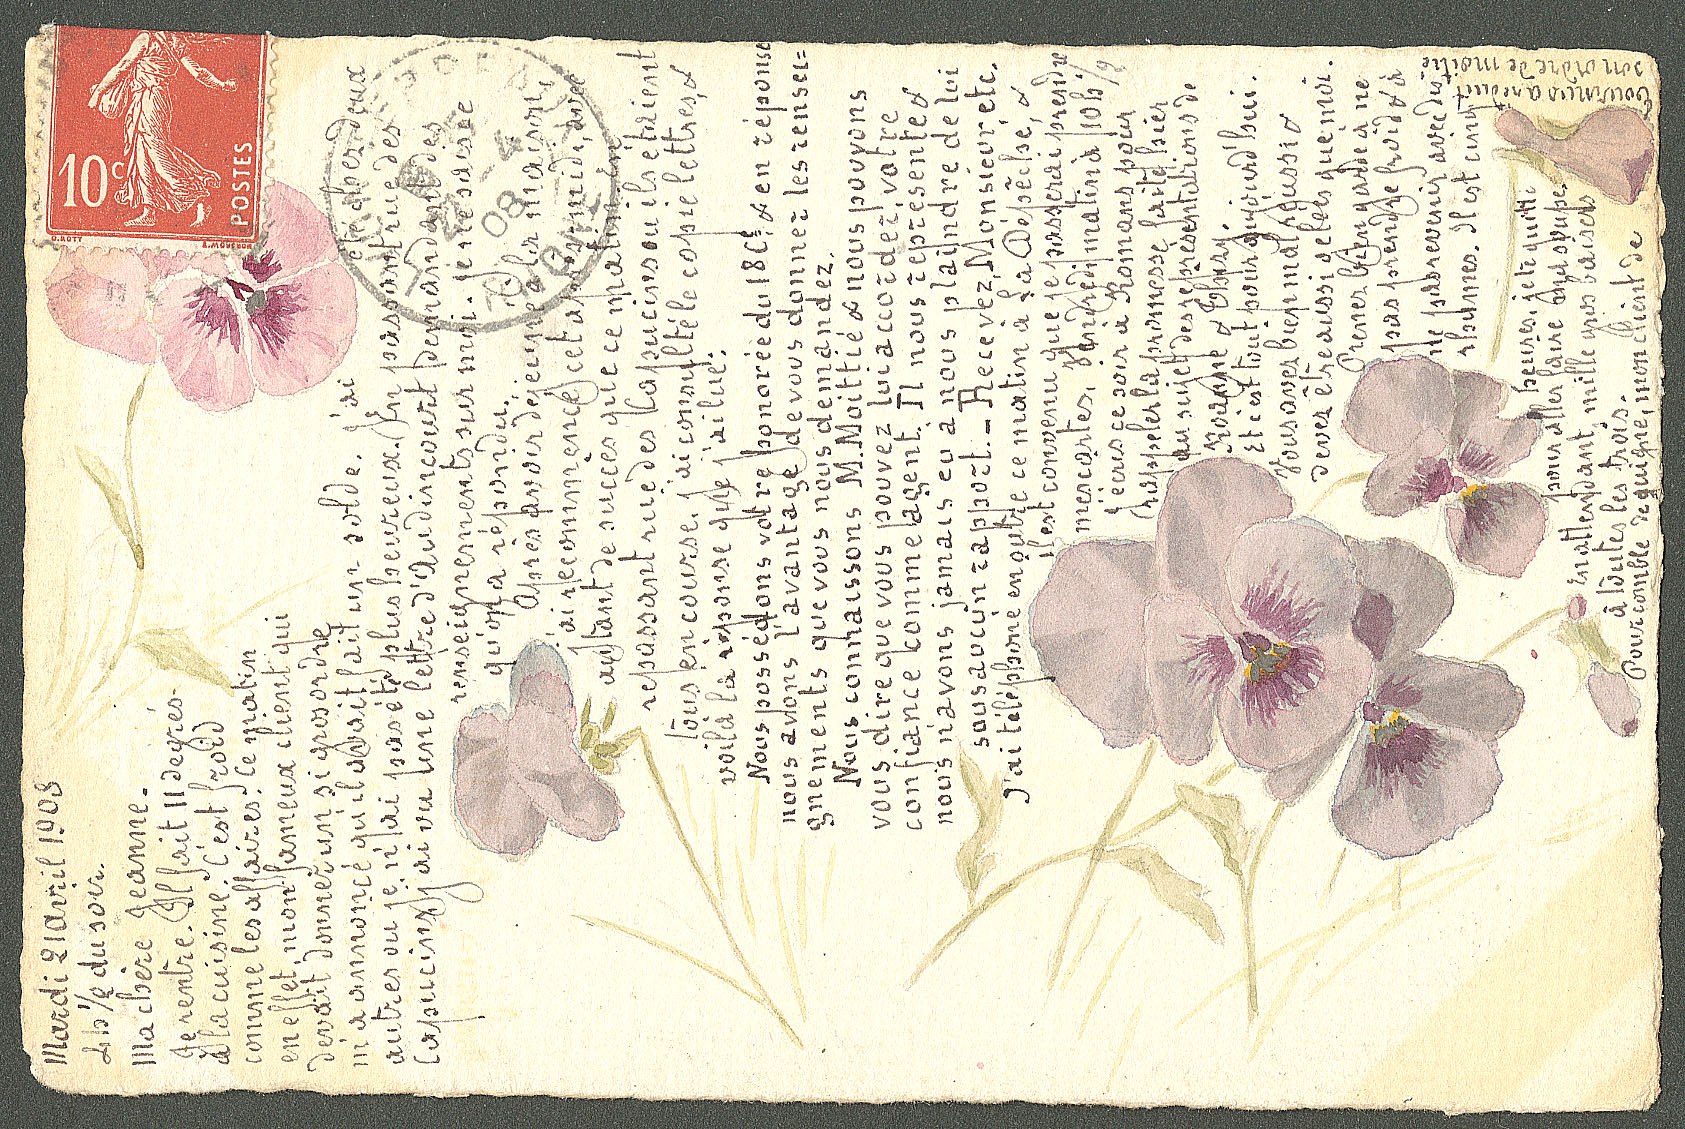 Mardi 21 avril 1908
4h 1/2 du soir.
Ma chère Jeanne.
Je rentre. Il fait 11 degrés
à la cuisine. C'est froid
comme les affaires. Ce matin
en effet, mon fameux client qui
devait donner un si gros ordre
m'a annoncé qu'il avait fait un solde. j'ai été chez deux
autres ou je n'ai pas été plus heureux. En passant rue des
Capucins j'ai vu une lettre d'Audincourt demandant des
renseignements sur moi. Je ne sais ce
qu'on a répondu.
Après avoir déjeuné à la maison j'
ai recommencé cet après midi, avec
autant de succès que ce matin. En
repassant rue des Capucins ou ils étaient
tous en course, j'ai consulté le copie lettres, &
voilà la réponse que j'ai lue:
Nous possédons votre honorée du 18 Ct. & en réponse
nous avons l'avantage de vous donner les rensei=
gnements que vous nous demandez.
Nous connaissons M. Moittié & nous pouvons
vous dire que vous pouvez lui accorder votre
confiance comme agent. Il nous représente &
nous n'avons jamais eu à nous plaindre de lui
sous aucun rapport. — Recevez, Monsieur, etc.
J'ai téléphoné en outre ce matin à La Dépêche, &
il est convenu que je passerai prendre
mes cartes, Vendredi matin à 10h 1/2
j'écris ce soir à Romans pour
rappeler la promesse faite hier
au sujet des représentations de
Roanne & Thizy.
Et c'est tout pour aujourd'hui.
Vous avez bien mal réussi &
devez être aussi gelées que moi.
Prenez bien garde à ne
pas prendre froid & à
ne pas revenir avec des
rhumes. Il est cinq
heures, je te quitte
pour aller faire ma soupe.
En attendant, mille gros baisers
à toutes les trois.
Pour comble de guigne, mon client de
Tournus a réduit
son ordre de moitié
10c
POSTES
O. ROTY
08
RHONE